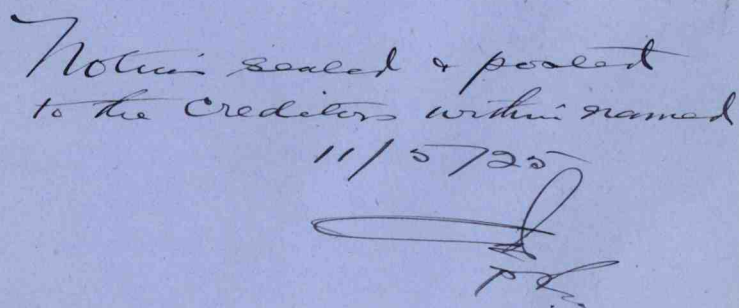 Notices sealed & posted
to the Creditors within named
11/5/25